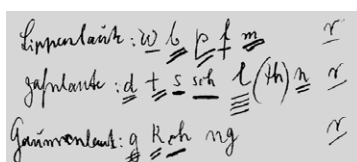 Lippenlaute: w b p f m r
Zahnlaute: d t s sch l (th) n r
Gaumenlaut: g k ch ng r